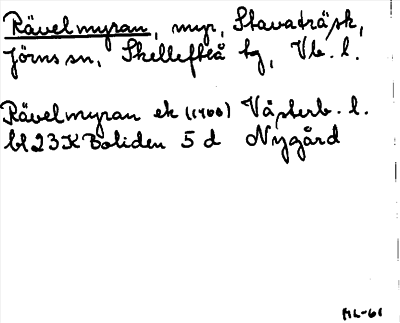 Rävelmyran, myr, Stavaträsk,
Jörns sn, Skellefteå tg, Vb. l.
Rävelmyran ek (1966) Västerb. l.
bl 23K Boliden 5 d Nygård
ML-61